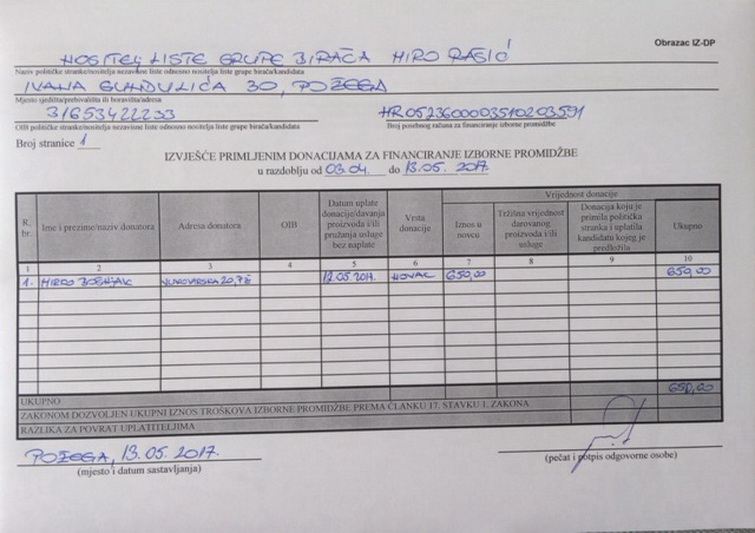 Obrazac IZ-DP
NOSITELJ LISTE GRUPE BIRAČA MIRO RAŠIĆ
Naziv političke stranke/nositelja nezavisne liste odnosno nositelja liste grupe birača/kandidata
IVANA GUNDULIĆA 30, POŽEGA
Mjesto sjedišta/prebivališta ili boravišta/adresa
31653422233
HR0523600003510203591
OIB političke stranke/nositelja nezavisne liste odnosno nositelja liste grupe birača/kandidata
Broj posebnog računa za financiranje izborne promidžbe
Broj stranice 1
IZVJEŠĆE PRIMLJENIM DONACIJAMA ZA FINANCIRANJE IZBORNE PROMIDŽBE
u razdoblju od 03.04. do 13.05. 2017.
R. br. Ime i prezime/naziv donatora Adresa donatora OIB Datum uplate donacije/davanja proizvoda i/ili pružanja usluge bez naplate Vrsta donacije Vrijednost donacije
Iznos u novcu Tržišna vrijednost darovanog proizvoda i/ili usluge Donacija koju je primila politička stranka i uplatila kandidatu kojeg je predložila Ukupno
1 2 3 4 5 6 7 8 9 10
1. MIRKO BOŠNJAK VUKOVARSKA 20, PŽ 12.05.2017. NOVAC 650,00 650,00
UKUPNO 650,00
ZAKONOM DOZVOLJEN UKUPNI IZNOS TROŠKOVA IZBORNE PROMIDŽBE PREMA ČLANKU 17. STAVKU 1. ZAKONA
RAZLIKA ZA POVRAT UPLATITELJIMA
POŽEGA, 13.05. 2017.
(mjesto i datum sastavljanja)
(pečat i potpis odgovorne osobe)